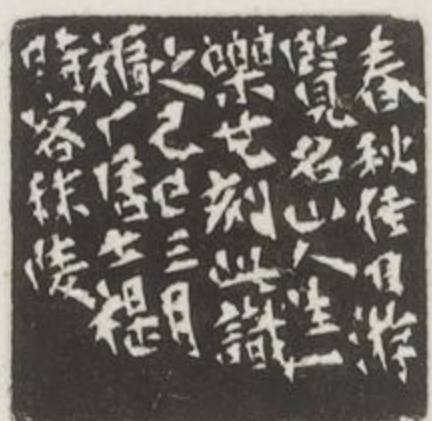 春秋佳日游
覽名山人生一
樂也刻此識
之己巳三月
福厂居士禔
時客秣陵